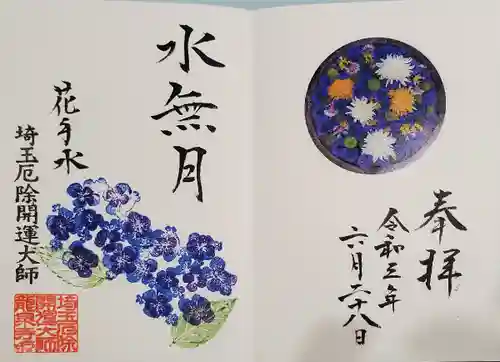 奉拝
令和三年
六月二十八日
水無月
花手水
埼玉厄除開運大師
埼玉厄除
開運大師
龍泉寺